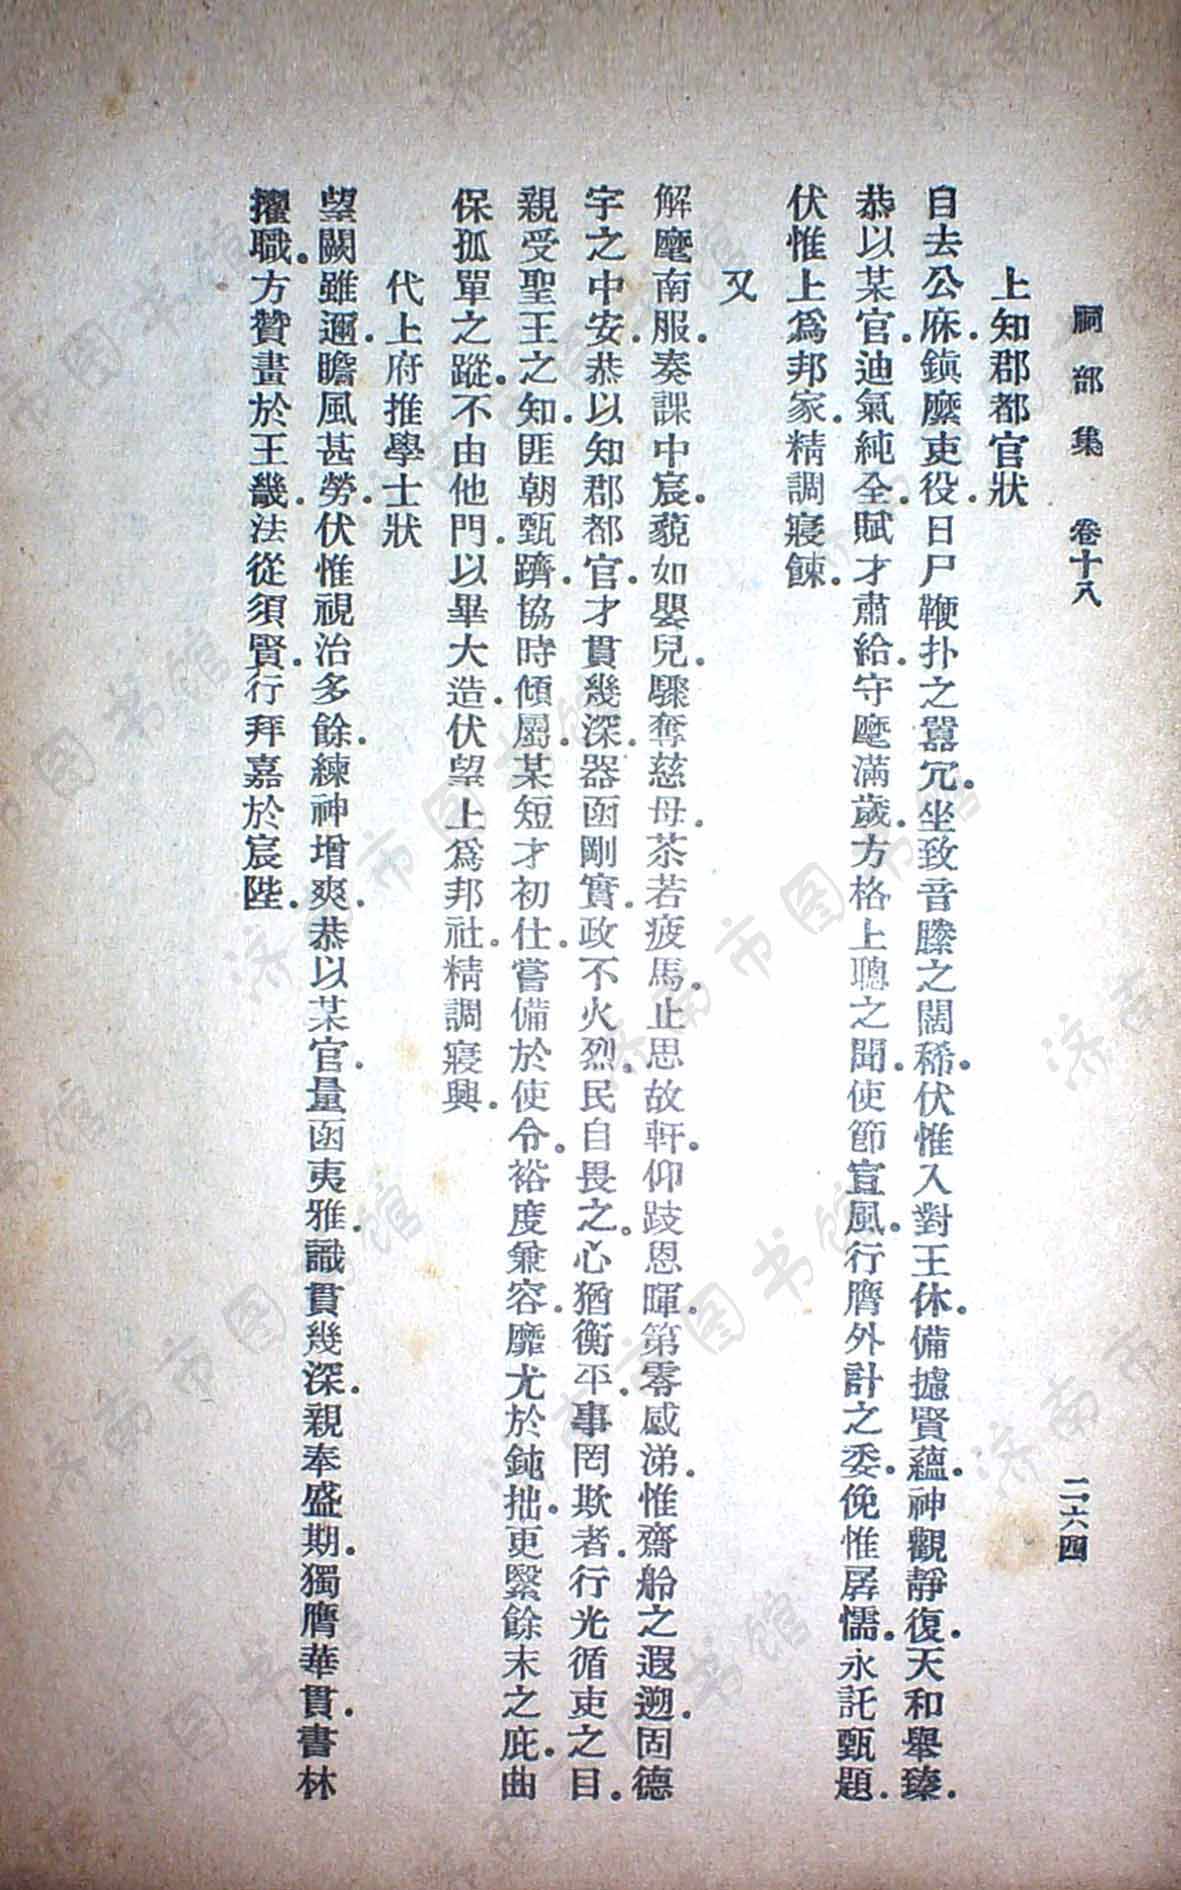 祠部集 卷十八 二六四
上知郡都官狀
自去公庥。鎮麼吏役。日尸鞭扑之囂冗。坐致音縢之闊稀。伏惟入對王休。備攄賢蘊。神觀靜復。天和舉臻。
恭以某官。迪氣純全。賦才肅給。守麾滿歲。方格上聰之聞。使節宣風。行膺外計之委。俛惟孱懦。永託甄題。
伏惟上爲邦家。精調寢餗。
又
解麾南服。奏課中宸。藐如嬰兒。驟奪慈母。苶若疲馬。止思故軒。仰跂恩暉。第零感涕。惟齋舲之遐遡。固德
宇之中安。恭以知郡都官。才貫幾深。器函剛實。政不火烈。民自畏之。心猶衡平。事罔欺者。行光循吏之目。
親受聖王之知。匪朝甄躋。協時傾屬。某短才初仕。嘗備於使令。裕度兼容。靡尤於鈍拙。更緊餘末之庇。曲
保孤單之蹤。不由他門。以畢大造。伏望上爲邦社。精調寢興。
代上府推學士狀
望闕雖邇。瞻風甚勞。伏惟視治多餘。練神增爽。恭以某官。量函夷雅。識貫幾深。親奉盛期。獨膺華貫。書林
擢職。方贊畫於王畿。法從須賢。行拜嘉於宸陛。
济南市图书馆